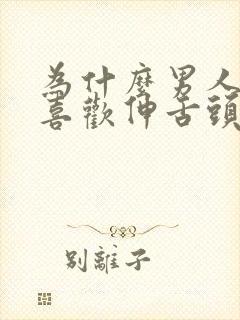 為什麼男人
喜歡伸舌頭
別離子